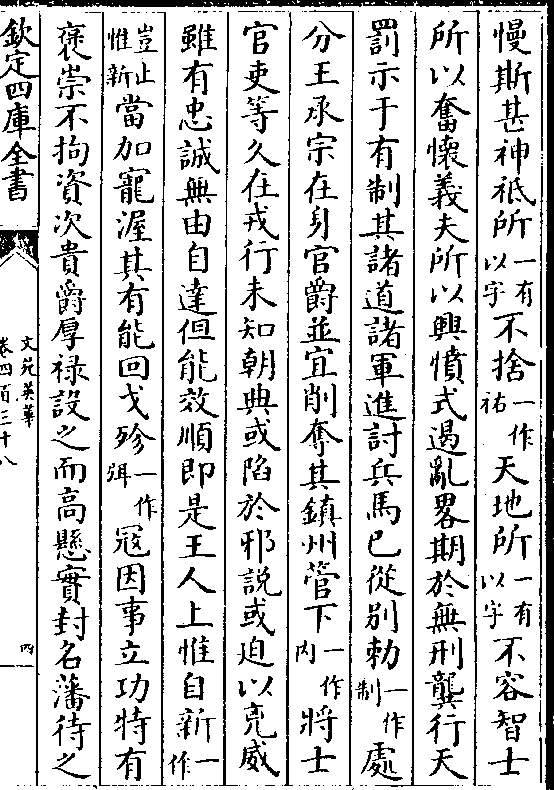 慢斯甚神祗所一有以字不捨一作祐天地所一有以字不容智士
所以奮懷義夫所以興憤式遏亂畧期於無刑龔行天
罰示于有制其諸道諸軍進討兵馬已從别勅一作制處
分王承宗在身官爵並宜削奪其鎮州管下一作内將士
官吏等久在戎行未知朝典或陷於邪說或迫以兇威
雖有忠誠無由自達但能效順即是王人上惟自新一作
豈止惟新當加寵渥其有能回戈殄一作弭冦因事立功特有
褒崇不拘資次貴爵厚禄設之而高懸實封名藩待之
欽定四庫全書
文苑英華
卷四百三十八
四